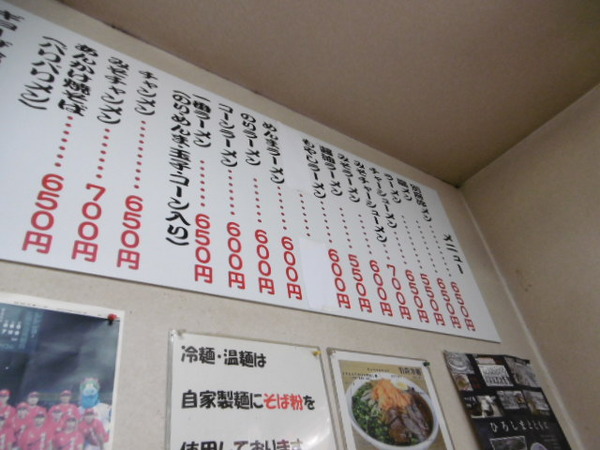 メニュー
650円
650円
ラーメン 550円
チャーシューメン 650円
みそチャーシューメン 700円
みそラーメン 600円
醤油ラーメン 550円
もやしラーメン 600円
めんまラーメン 600円
のりラーメン 600円
コーンラーメン 600円
一番ラーメン 650円
(のり・めんま・玉子・コーン入り)
チャンメン 650円
みそチャンメン 700円
あんかけ焼そば 650円
(パリパリメン)
冷麺・温麺は
自家製麺にそば粉を
使用しております
ひろしまとともに